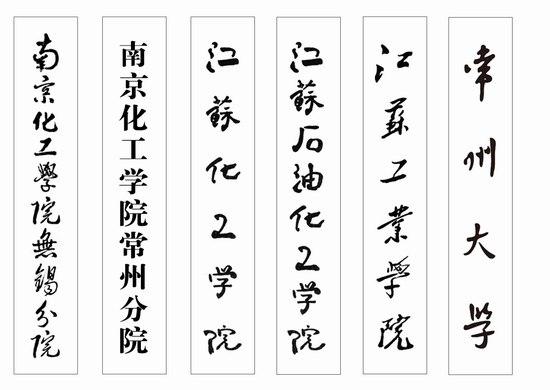 南京化工學院無錫分院
南京化工学院常州分院
江蘇化工学院
江蘇石油化工学院
江蘇工業學院
常州大学